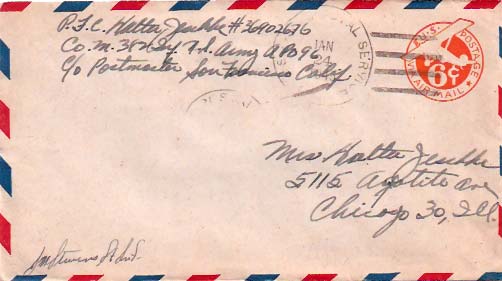 P.F.C. Walter Jeschke #36902676
Co. M. 382 Inf. Army A.P.O 96
c/o Postmaster San Francisco Calif
JAN
24
SERVICE
U.S. POSTAGE
6¢
VIA AIR MAIL
Mrs Walter Jeschke
5115 Agatite ave
Chicago 30, Ill.